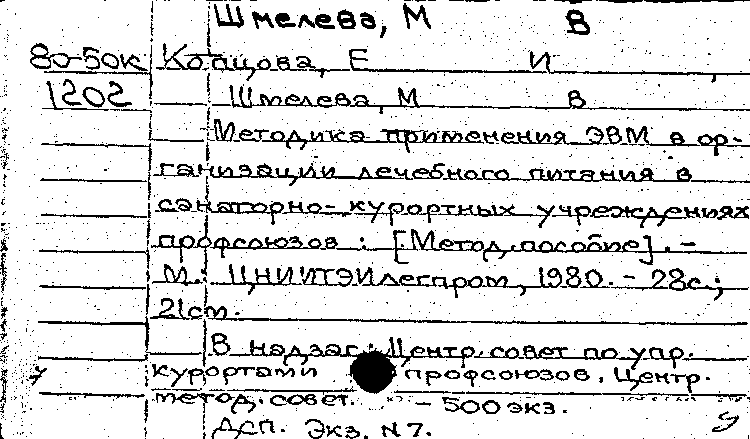 Шмелева, М В
80-50к Копцова, Е И
1202 Шмелева, М В
Методика применения ЭВМ в ор-
ганизации лечебного питания в
санаторно-курортных учреждениях
профсоюзов : [Метод. пособие]. -
М.: ЦНИИТЭИлегпром, 1980. - 28с.;
21см.
В надзаг.: Центр. совет по упр.
курортами профсоюзов. Центр.
метод. совет. - 500 экз.
Дсп. Экз. N 7.